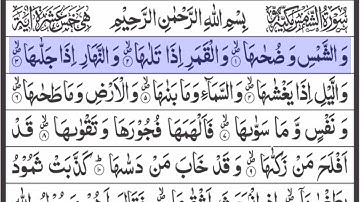 سُوْرَةُ الشَّمْسِ مَكِّيَّةٌ بِسْمِ اللّٰهِ الرَّحْمٰنِ الرَّحِيْمِ وَّهِيَ خَمْسَ عَشْرَةَ اٰيَةً
وَالشَّمْسِ وَضُحٰىهَا ۝۱ وَالْقَمَرِ اِذَا تَلٰىهَا ۝۲ وَالنَّهَارِ اِذَا جَلّٰىهَا ۝۳
وَالَّيْلِ اِذَا يَغْشٰىهَا ۝۴ وَالسَّمَآءِ وَمَا بَنٰىهَا ۝۵ وَالْاَرْضِ وَمَا طَحٰىهَا ۝۶
وَنَفْسٍ وَّمَا سَوّٰىهَا ۝۷ فَاَلْهَمَهَا فُجُوْرَهَا وَتَقْوٰىهَا ۝۸ قَدْ
اَفْلَحَ مَنْ زَكّٰىهَا ۝۹ وَقَدْ خَابَ مَنْ دَسّٰىهَا ۝۱۰ كَذَّبَتْ ثَمُوْدُ